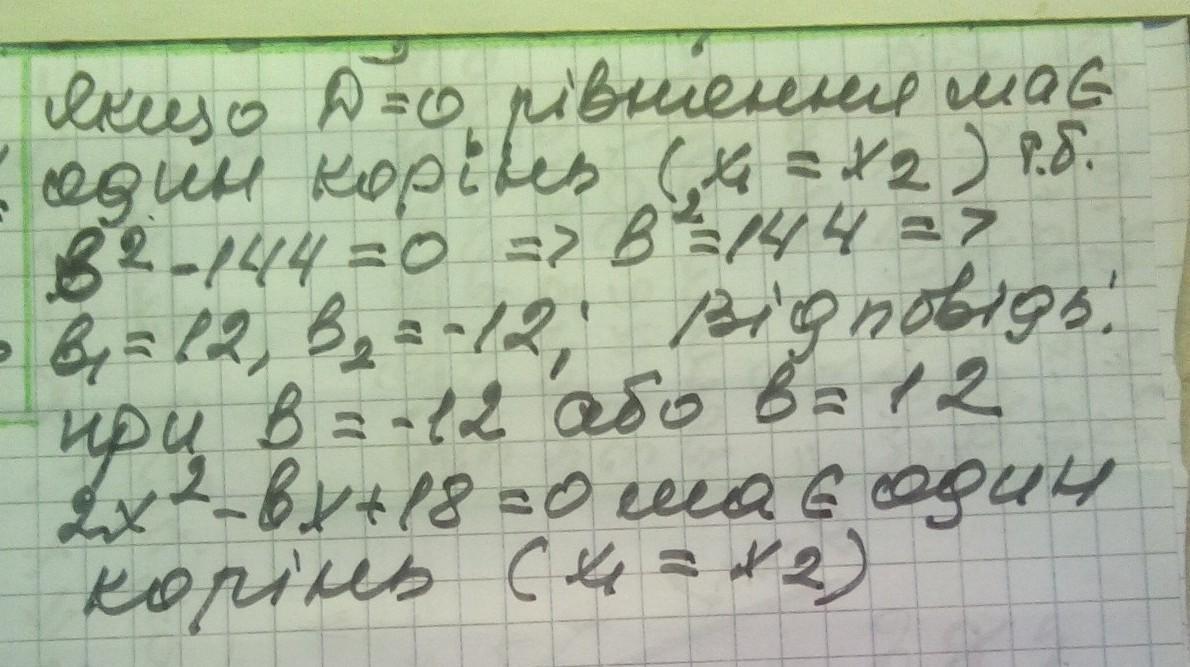 Якщо D=0, рівняння має
один корінь (x₁ = x₂) т.б.
в² - 144 = 0 => в² = 144 =>
в₁ = 12, в₂ = -12; Відповідь:
при в = -12 або в = 12
2x² - вx + 18 = 0 має один
корінь (x₁ = x₂)